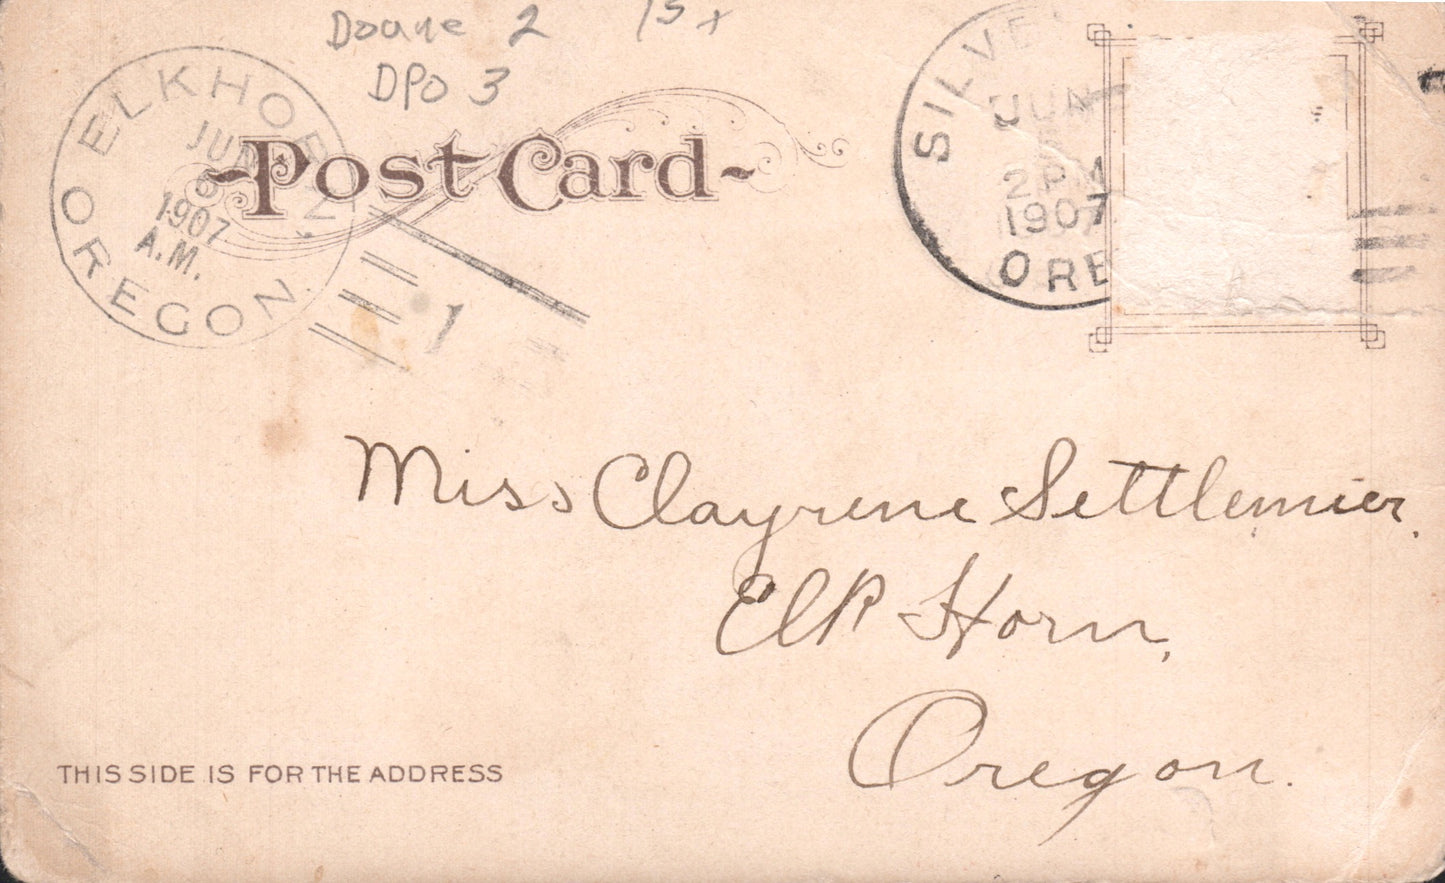 Doane 2 15 x
DPO 3
ELKHOR
OREGON.
JUN
1907
A.M.
1
Post Card
SILVE
JUN
2 PM
1907
ORE
Miss Clayrene Settlemier.
Elk Horn,
Oregon.
THIS SIDE IS FOR THE ADDRESS